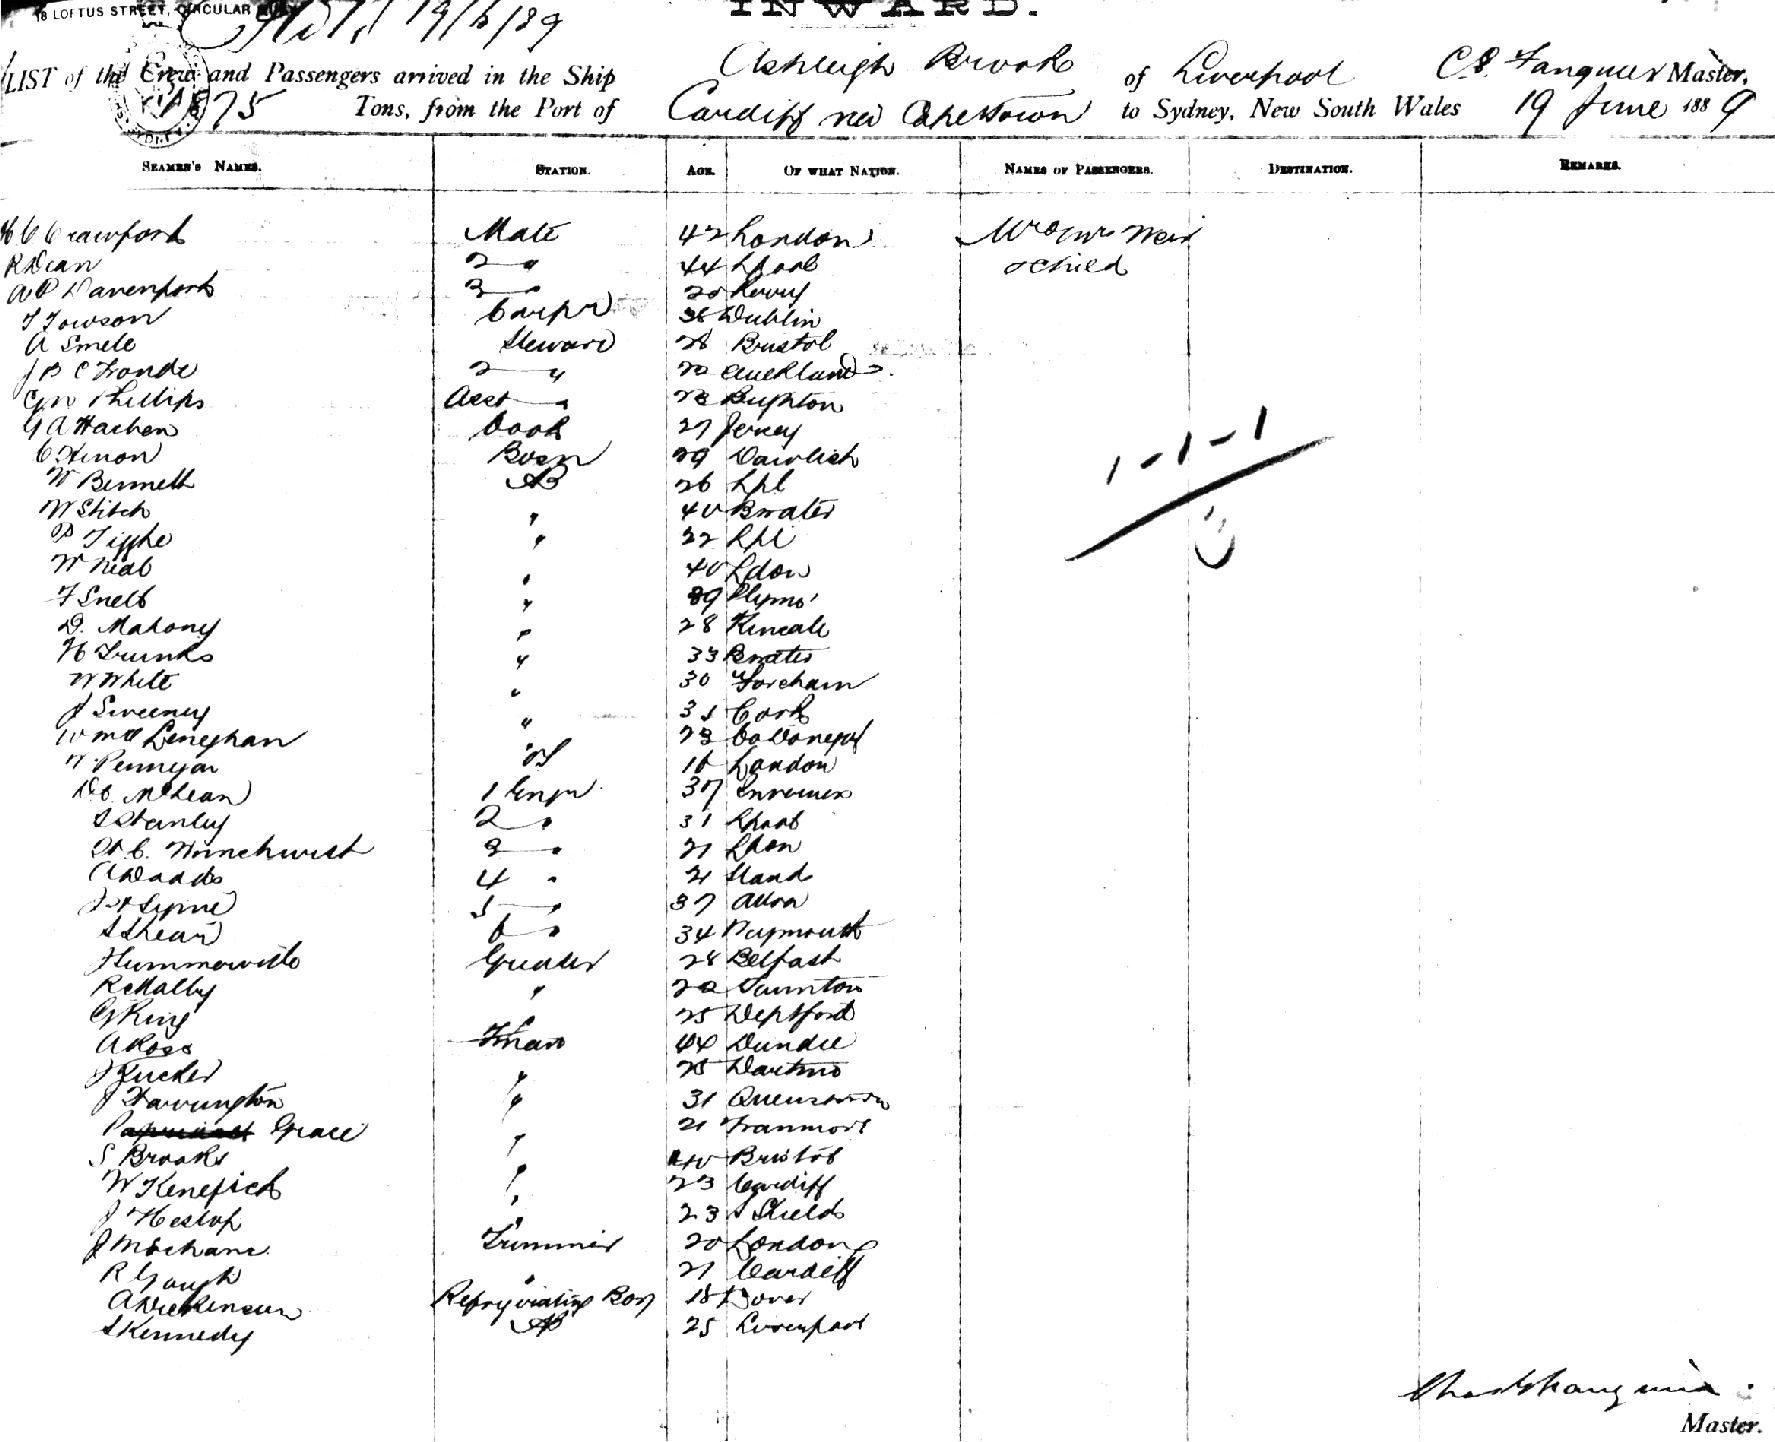 18 LOFTUS STREET, CIRCULAR
19/6/89
INWARD.
LIST of the Crew and Passengers arrived in the Ship Ashleigh Brook of Liverpool C S Master,
Tons, from the Port of Cardiff via Capetown to Sydney, New South Wales 19 June 1889
SEAMEN'S NAMES. STATION. AGE. OF WHAT NATION. NAMES OF PASSENGERS. DESTINATION. REMARKS.
Crawford Mate 42 London Mr & Mrs Weir
R Dean 2 " 44 Lpool & child
A P Davenport 3 "
T Towson Carpr 36 Dublin
A Smele Steward 28 Bristol
J B C Fronde 2 " Auckland
Phillips Asst " Brighton
G A Hachen Cook 27 Jersey
C Hinon Bosn 29 Dawlish
W Bennett AB 26 Lpl
W Stitch " 40 Bwater
P Tighe " 22 Lpl
W Neal " 40 Ldon
F Snell " 39 Plymo'
D. Mahony " 28 Kinsale
H Trunks " 33 Bwater
W White " 30
J Sweeney " 31 Cork
Leneghan " 23 Co Donegal
London
D. C. McLean 1 Engr 37 Inverness
S Stanley 2 " 31 Lpool
3 " 21 Ldon
A Dadds 4 "
5 " 37 Alloa
S Shear 6 " 34 Plymouth
Greaser 28 Belfast
R Malby " Taunton
G King " 25 Deptford
A Ross Fman 44 Dundee
J Tucker " 25
J Harrington " 31 Queenstown
P Grace " 21 Tranmore
S Brooks " 40 Bristol
W Kenefick " 23 Cardiff
J Heslop " 23 S Shields
J Trimmer 20 London
R Gough " 21 Cardiff
A Dickenson Refrigerating Boy 18 Dover
S Kennedy AB 25 Liverpool
1-1-1
Master.